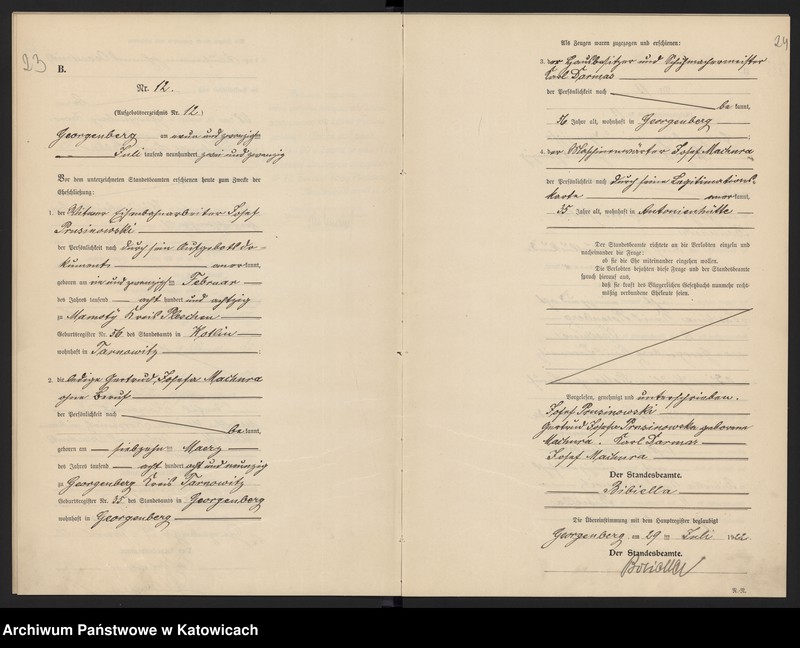 23
B.
Nr. 12.
(Aufgebotsverzeichnis Nr. 12)
Georgenberg am neun und zwanzigsten
Juli tausend neunhundert zwei und zwanzig
Vor dem unterzeichneten Standesbeamten erschienen heute zum Zwecke der
Eheschließung:
1. der Witwer Eisenbahnarbeiter Josef
Prusinowski
der Persönlichkeit nach durch sein Aufgebotsdo-
kumente anerkannt,
geboren am und zwanzigsten Februar
des Jahres tausend acht hundert und achtzig
zu Mamoty Kreis Pleschen
Geburtsregister Nr. 36 des Standesamts in Kotlin
wohnhaft in Tarnowitz;
2. die ledige Gertrud, Josefa Machura
ohne Beruf
der Persönlichkeit nach
bekannt,
geboren am siebzehnten Maerz
des Jahres tausend acht hundert acht und neunzig
zu Georgenberg Kreis Tarnowitz
Geburtsregister Nr. 35 des Standesamts in Georgenberg
wohnhaft in Georgenberg
24
Als Zeugen waren zugezogen und erschienen:
3. der Hausbesitzer und Schuhmachermeister
Karl Darmas
der Persönlichkeit nach
bekannt,
36 Jahre alt, wohnhaft in Georgenberg;
4. der Maschinenwärter Josef Machura
der Persönlichkeit nach durch seine Legitimations-
karte anerkannt,
35 Jahre alt, wohnhaft in Antonienhütte
Der Standesbeamte richtete an die Verlobten einzeln und
nacheinander die Frage:
ob sie die Ehe miteinander eingehen wollen.
Die Verlobten bejahten diese Frage und der Standesbeamte
sprach hierauf aus,
daß sie kraft des Bürgerlichen Gesetzbuchs nunmehr recht-
mäßig verbundene Eheleute seien.
Vorgelesen, genehmigt und unterschrieben.
Josef Prusinowski
Gertrud Josefa Prusinowska geborene
Machura. Karl Darmas
Josef Machura
Der Standesbeamte.
Bibiella
Die Übereinstimmung mit dem Hauptregister beglaubigt
Georgenberg, am 29 ten Juli 1922.
Der Standesbeamte.
Bibiella
N.-R.
Archiwum Państwowe w Katowicach